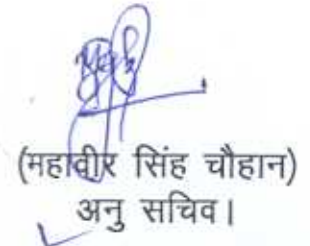 (महावीर सिंह चौहान)
अनु सचिव।